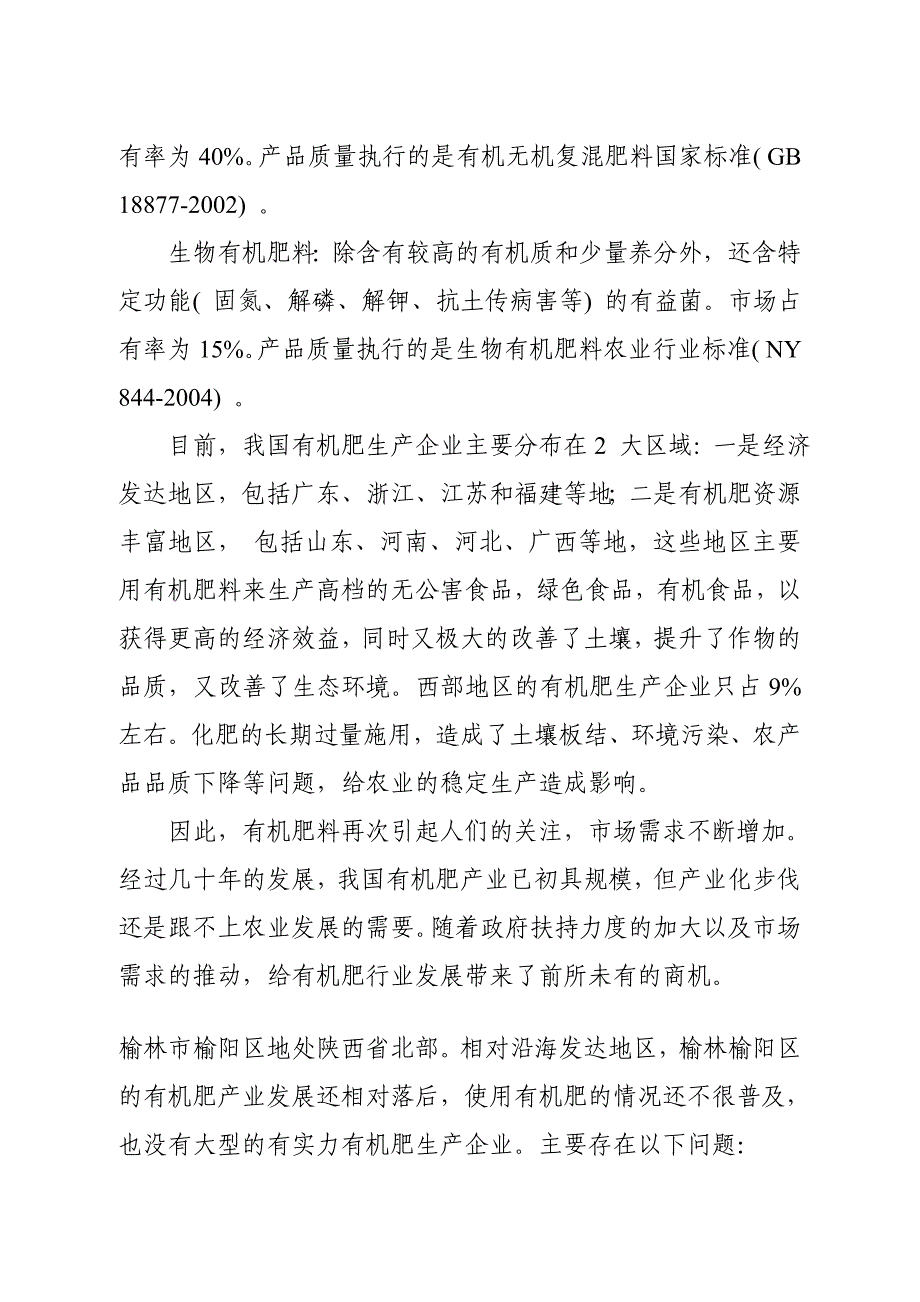 有率为 40%。产品质量执行的是有机无机复混肥料国家标准( GB
18877-2002) 。
生物有机肥料: 除含有较高的有机质和少量养分外，还含特
定功能( 固氮、解磷、解钾、抗土传病害等) 的有益菌。市场占
有率为 15%。产品质量执行的是生物有机肥料农业行业标准( NY
844-2004) 。
目前，我国有机肥生产企业主要分布在 2 大区域: 一是经济
发达地区，包括广东、浙江、江苏和福建等地; 二是有机肥资源
丰富地区， 包括山东、河南、河北、广西等地，这些地区主要
用有机肥料来生产高档的无公害食品，绿色食品，有机食品，以
获得更高的经济效益，同时又极大的改善了土壤，提升了作物的
品质，又改善了生态环境。西部地区的有机肥生产企业只占 9%
左右。化肥的长期过量施用，造成了土壤板结、环境污染、农产
品品质下降等问题，给农业的稳定生产造成影响。
因此，有机肥料再次引起人们的关注，市场需求不断增加。
经过几十年的发展，我国有机肥产业已初具规模，但产业化步伐
还是跟不上农业发展的需要。随着政府扶持力度的加大以及市场
需求的推动，给有机肥行业发展带来了前所未有的商机。
榆林市榆阳区地处陕西省北部。相对沿海发达地区，榆林榆阳区
的有机肥产业发展还相对落后，使用有机肥的情况还不很普及，
也没有大型的有实力有机肥生产企业。主要存在以下问题: